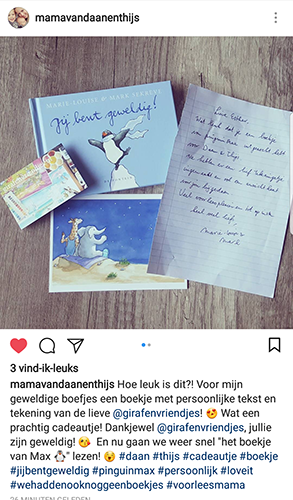 mamavandaanenthijs
MARIE-LOUISE & MARK SEKRÈVE
Jij bent geweldig!
Lieve Esther,
Wat leuk dat je een boekje
voor Daan & Thijs.
We hebben er een lief
Veel voorleesplezier en
heel veel liefs,
Marie-Louise &
Mark
3 vind-ik-leuks
mamavandaanenthijs Hoe leuk is dit?! Voor mijn
geweldige boefjes een boekje met persoonlijke tekst en
tekening van de lieve @girafenvriendjes! 😍 Wat een
prachtig cadeautje! Dankjewel @girafenvriendjes, jullie
zijn geweldig! 😘 En nu gaan we weer snel "het boekje
van Max 🐧" lezen! 😲 #daan #thijs #cadeautje #boekje
#jijbentgeweldig #pinguinmax #persoonlijk #loveit
#wehaddenooknoggeenboekjes #voorleesmama
26 MINUTEN GELEDEN